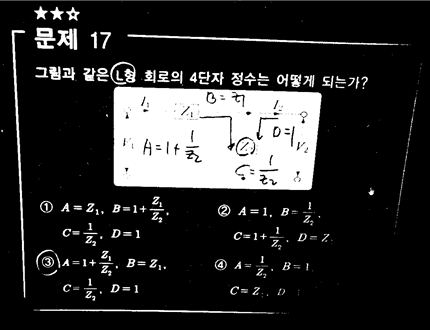 ★★☆
문제 17
그림과 같은 L형 회로의 4단자 정수는 어떻게 되는가?
B = Z1
I1 Z1 I2
V1 A = 1 + 1/Z2 Z2 D = 1 V2
C = 1/Z2
① A = Z₁, B = 1 + Z₁/Z₂,
C = 1/Z₂, D = 1
② A = 1, B = 1/Z₂,
C = 1 + 1/Z₂, D = Z
③ A = 1 + Z₁/Z₂, B = Z₁,
C = 1/Z₂, D = 1
④ A = 1/Z₂, B = 1,
C = Z, D